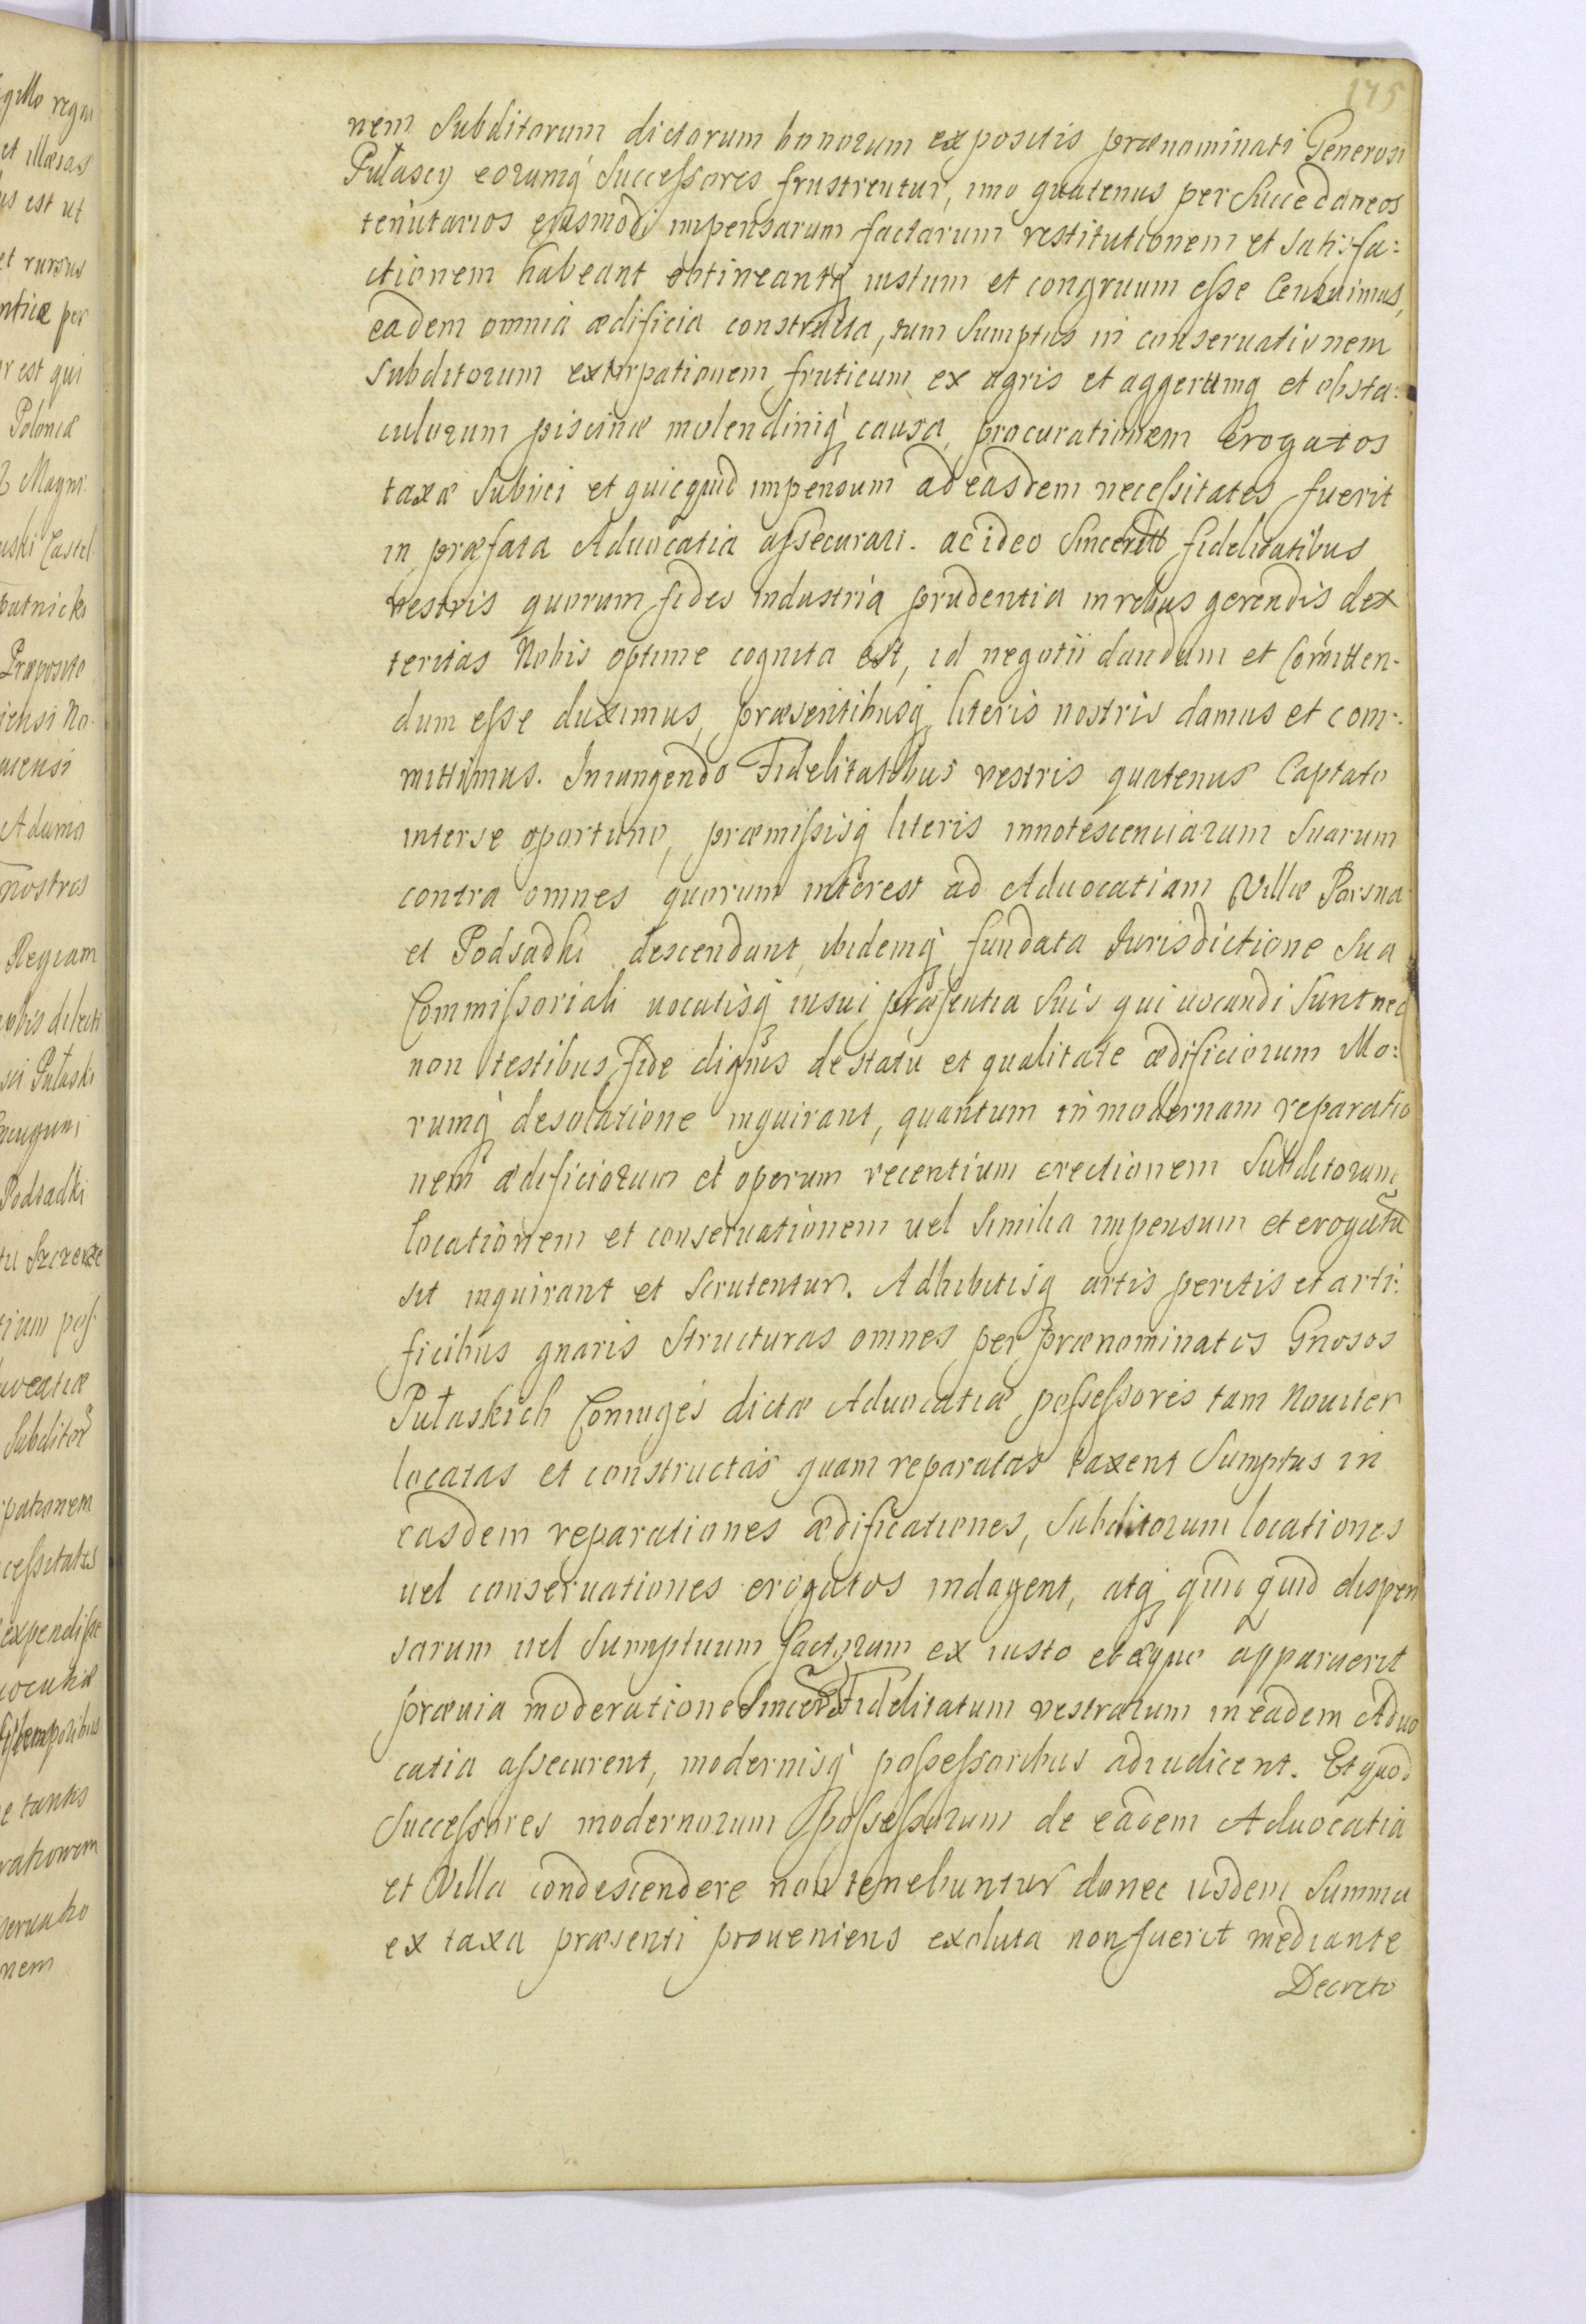 175
nem Subditorum dictorum bonorum expositis prænominati Generosi
Pułascy eorumq́ Successores frustrentur, imo quatenus per Succedaneos
tenutarios eiusmodi impensarum factarum restitutionem et satisfa:
ctionem habeant obtineantq́ iustum et congruum esse Censuimus,
eadem omnia ædificia constructa, tum Sumptus in conseruationem
subditorum extirpationem fruticum ex agris et aggerumq et obsta:
culorum piscinæ molendiniq́ causa, procurationem Erogatos
taxæ subiici et quicquid impensum ad easdem necessitates fuerit
in præfata Aduocatia assecurari. ac ideo Sinceritt fidelitatibus
vestris quorum fides industria prudentia in rebus gerendis dex
teritas Nobis optime cognita est, id negotii dandum et Comitten-
dum esse duximus, præsentibusq literis nostris damus et com-
mittimus. Iniungendo Fidelitatibus vestris quatenus Captato
inter se oportuno, præmissisq literis innotescentiarum Suarum
contra omnes quorum interest ad Aduocatiam Villæ Porsna
et Podsadki descendant, ibidemq́ fundata Iurisdictione Sua
Commissoriali uocatisq́ in sui præsentia Suis qui uocandi Sunt nec
non testibus fide dignis de statu et qualitate ædificiorum Mo:
rumq́ desolatione inquirant, quantum in modernam reparatio
nem ædificiorum et operum recentium erectionem Subditorum
locationem et conseruationem uel Similia impensum et erogatũ
sit inquirant et scrutentur. Adhibitisq artis peritis et arti:
ficibus gnaris structuras omnes per prænominatos Gnosos
Pułaskich Coniuges dictæ Aduocatiæ possessores tam Nouiter
locatas et constructas quam reparatas taxent Sumptus in
easdem reparationes ædificationes, Subditorum locationes
uel conseruationes erogatos indagent, atq́ quic quid dispen
sarum uel Sumptuum factorum ex iusto et æquo apparuerit
præuia moderatione Sincer Fidelitatum vestrarum in eadem Aduo
catia assecurent, modernisq́ possessoribus adiudicent. Et quod
Successores modernorum Possessorum de eadem Aduocatia
et Villa condescendere non tenebuntur donec iisdem Summa
ex taxa præsenti proueniens exoluta non fuerit mediante
Decreto